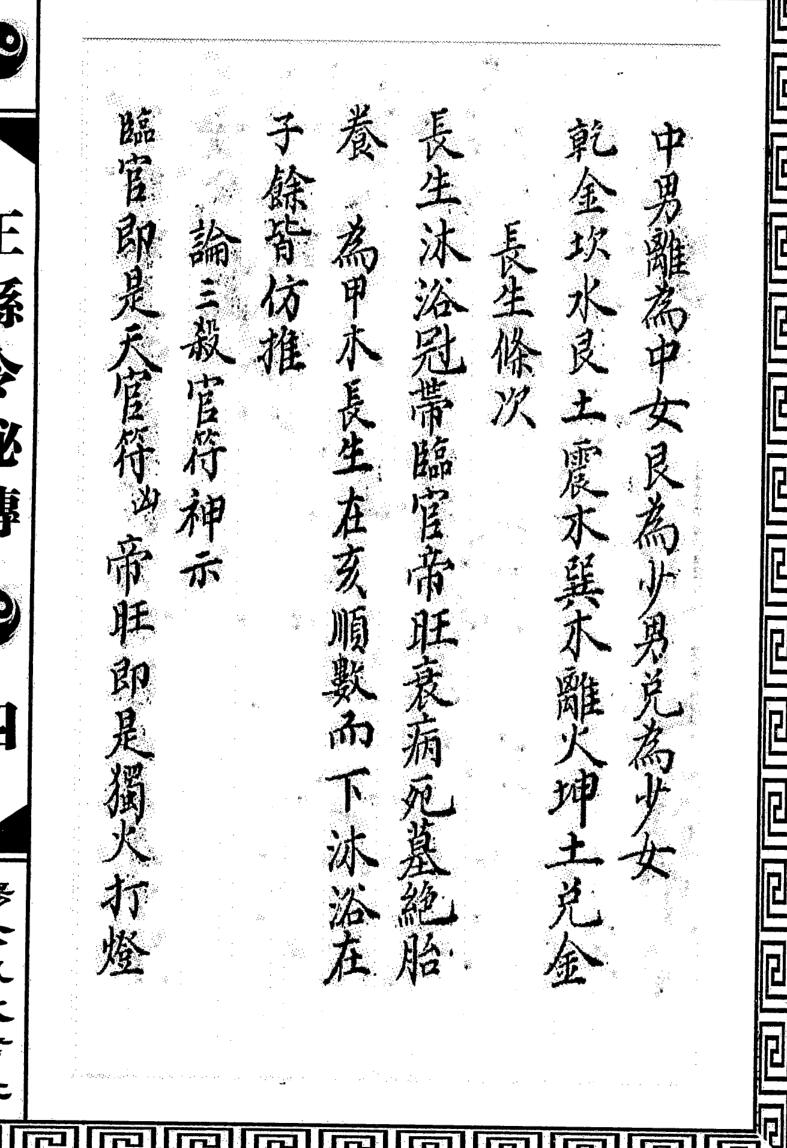 中男離為中女艮為少男兑為少女
乾金坎水艮土震木巽木離火坤土兑金
長生條次
長生沐浴冠帶臨官帝旺衰病死墓絕胎
養　為甲木長生在亥順數而下沐浴在
子餘皆仿推
論三殺官符神示
臨官即是天官符凶帝旺即是獨火打燈